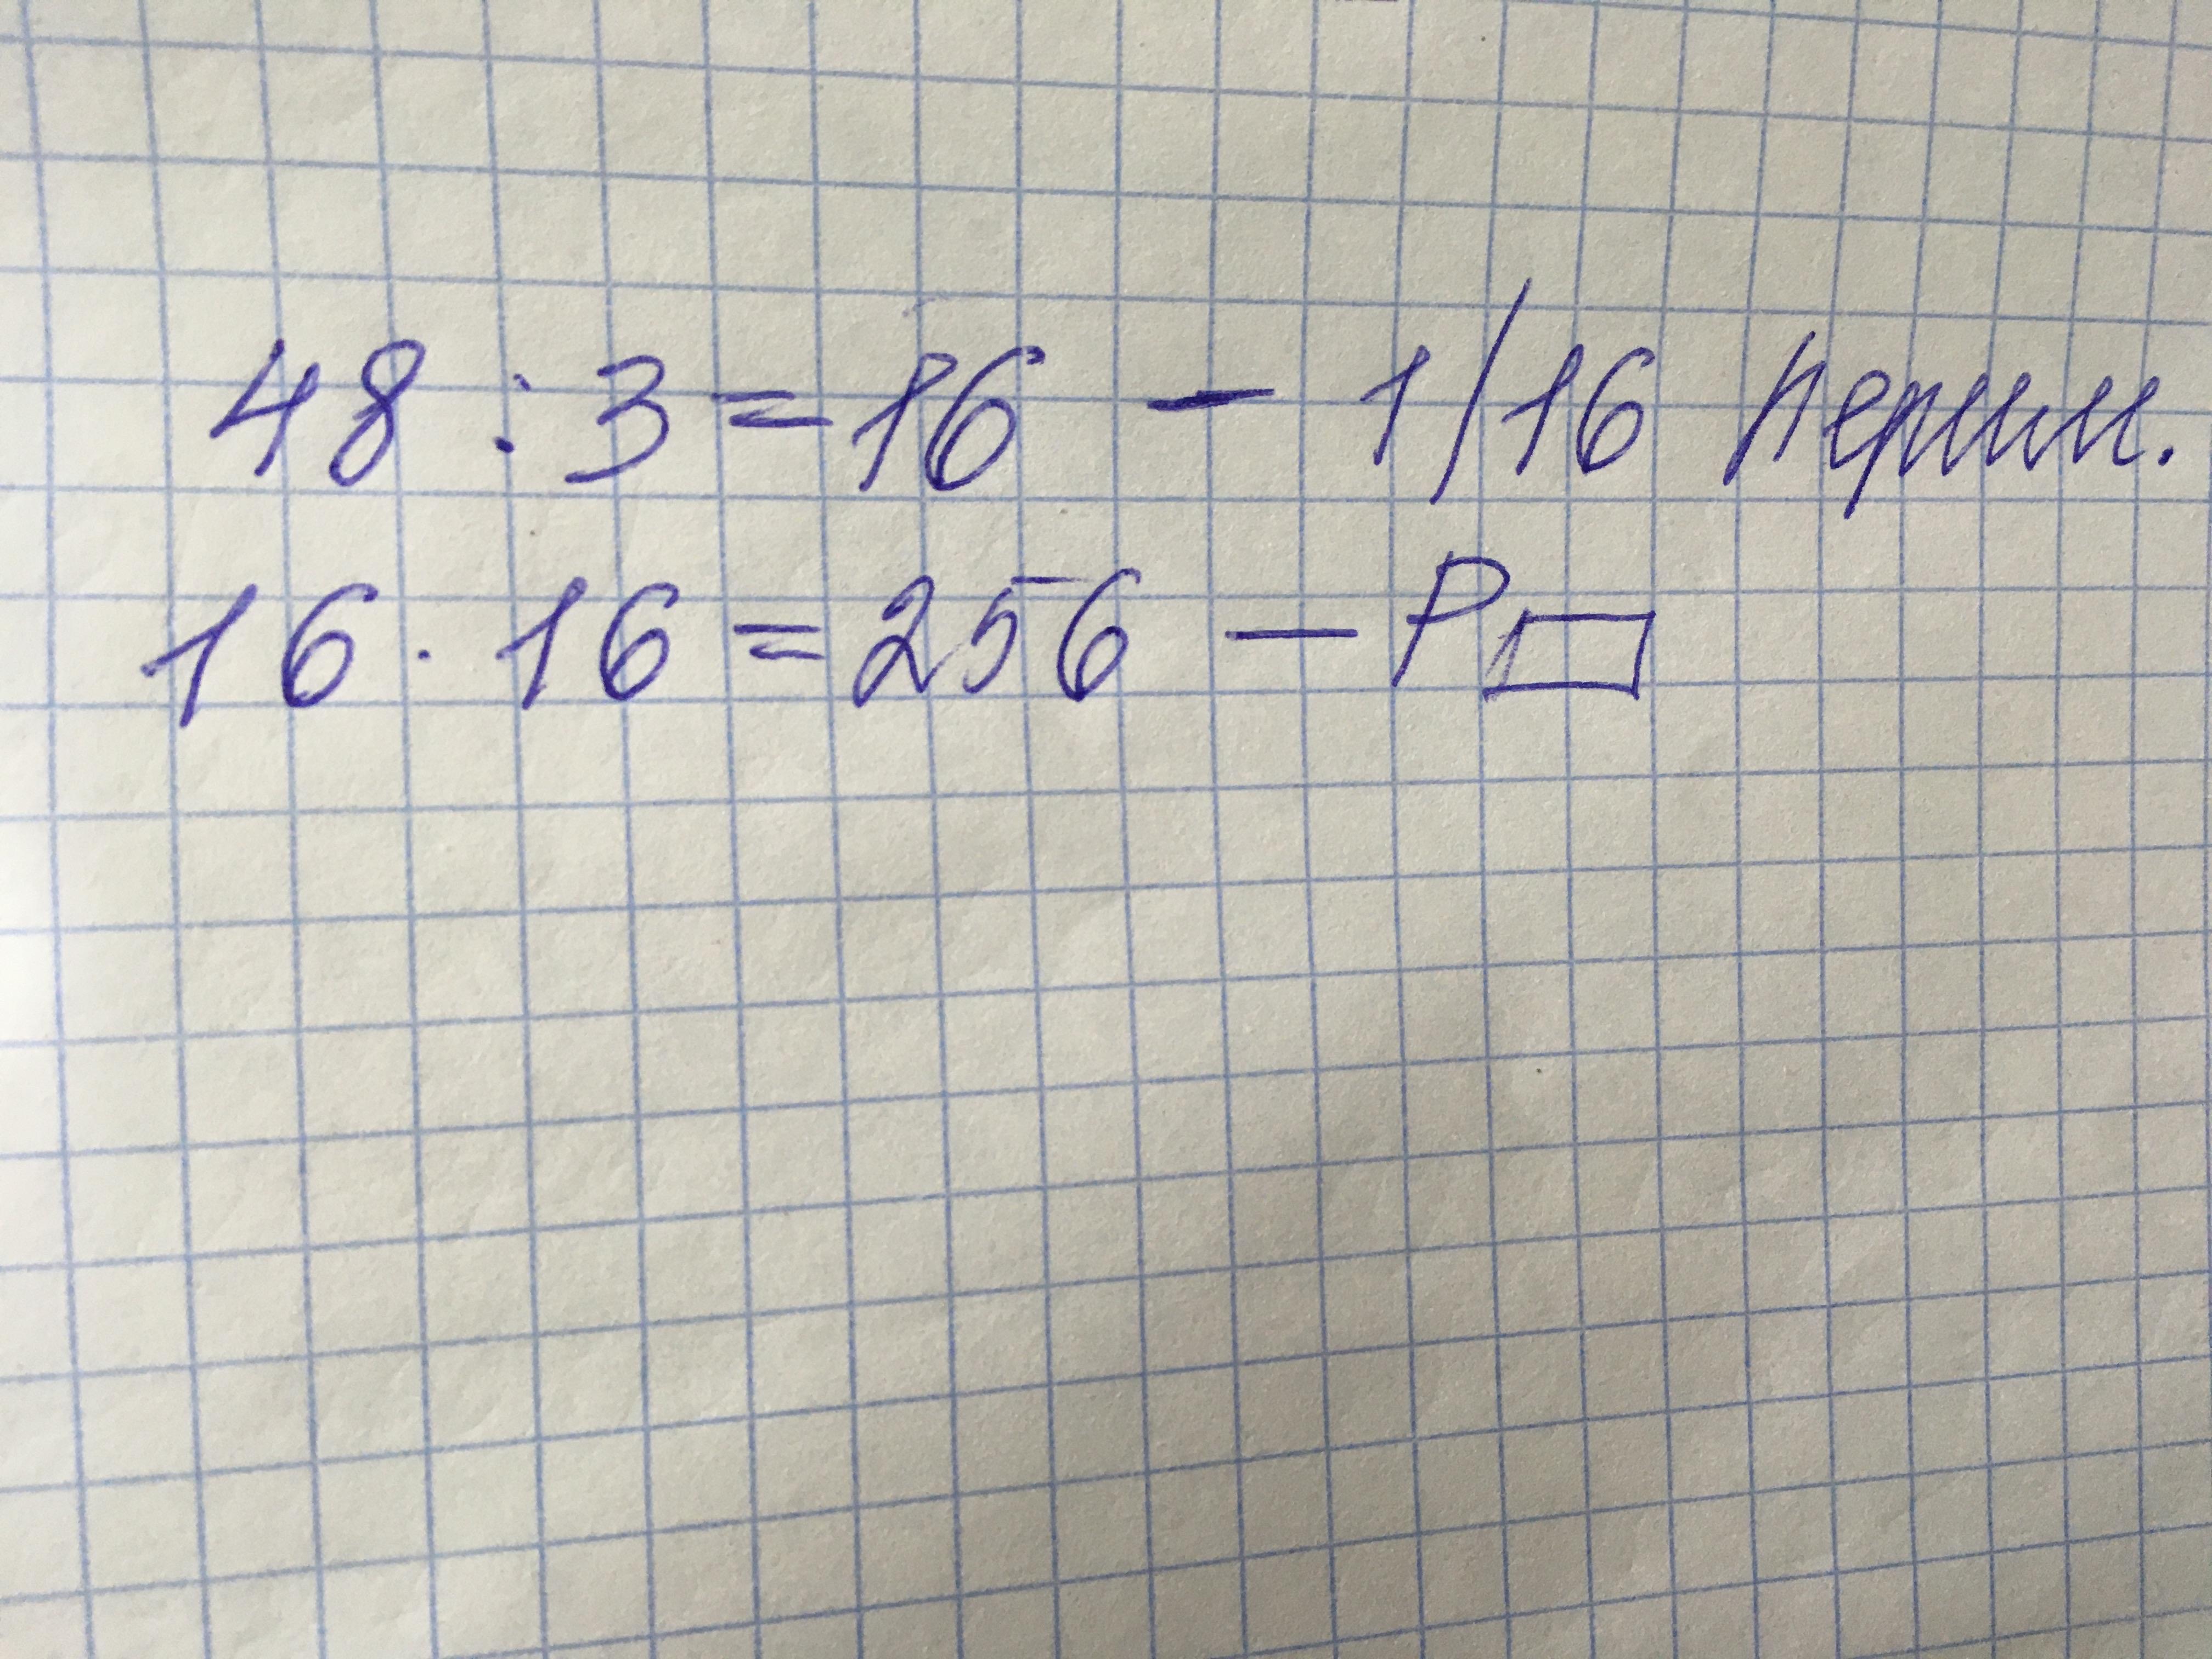 48 : 3 = 16 - 1/16 перим.
16 · 16 = 256 - P▭